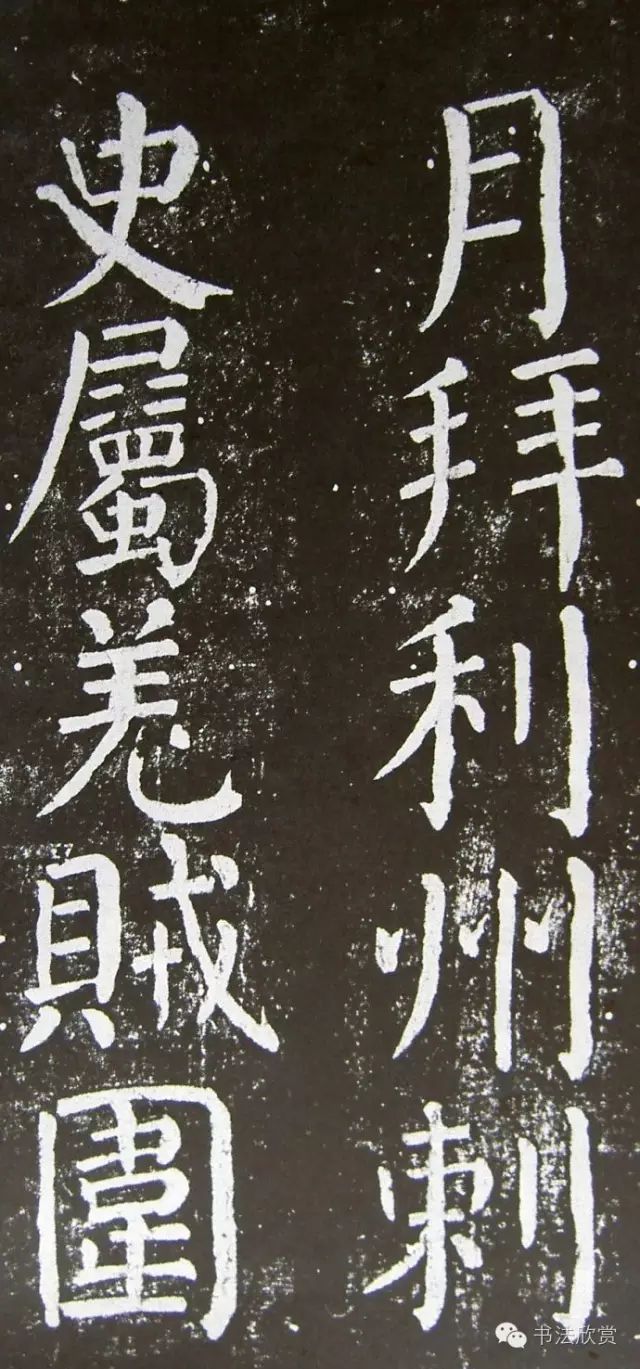 月拜利州刺
史屬羌賊圍
书法欣赏